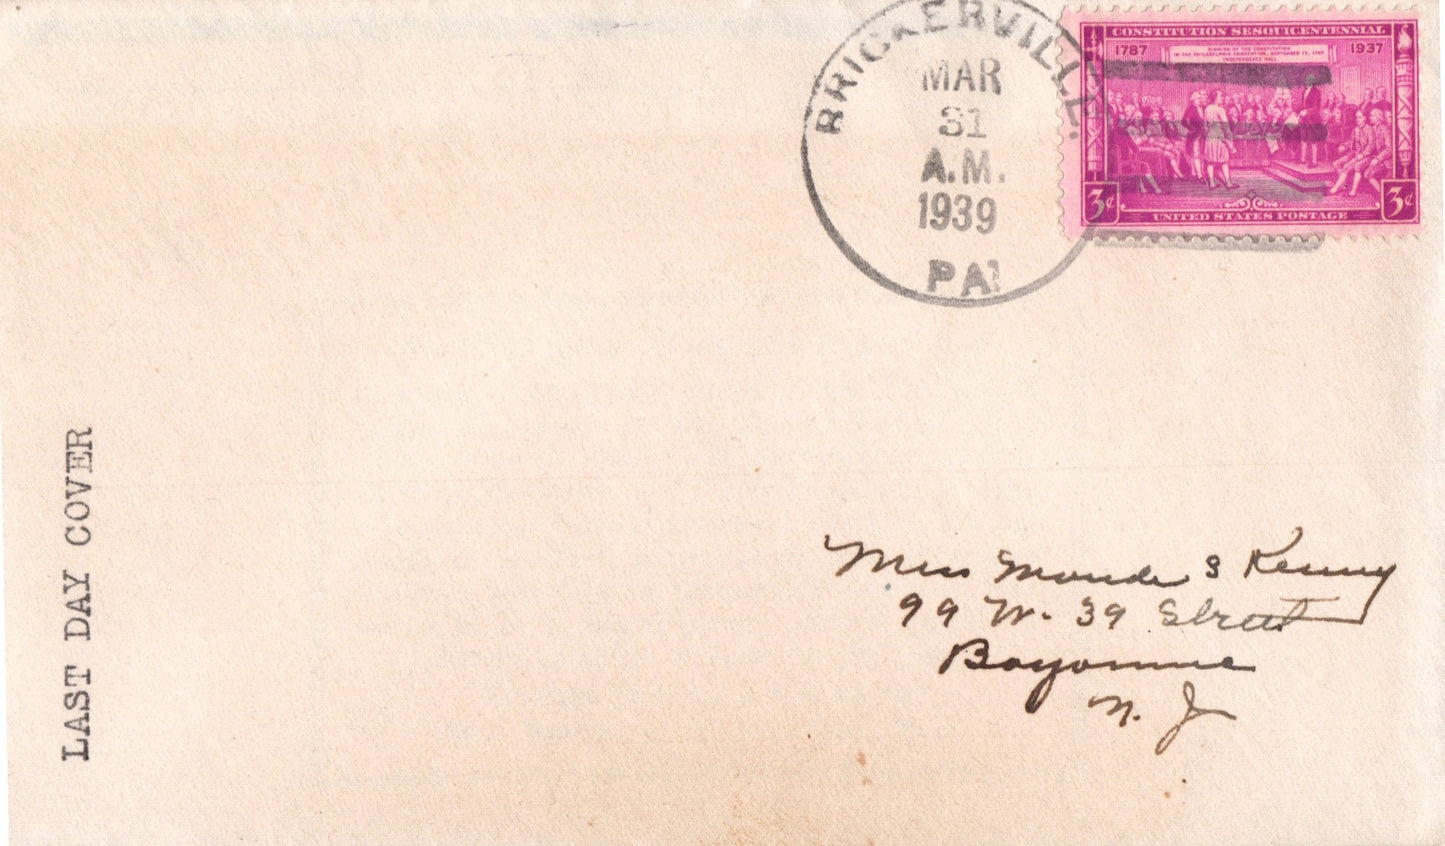 BRICKERVILLE.
MAR
31
A.M.
1939
PA.
CONSTITUTION SESQUICENTENNIAL
1787 1937
SIGNING OF THE CONSTITUTION
IN THE PHILADELPHIA CONVENTION, SEPTEMBER 17, 1787
INDEPENDENCE HALL
3¢ 3¢
UNITED STATES POSTAGE
LAST DAY COVER
Miss Maude S Kenny
99 W. 39 Street
Bayonne
N. J